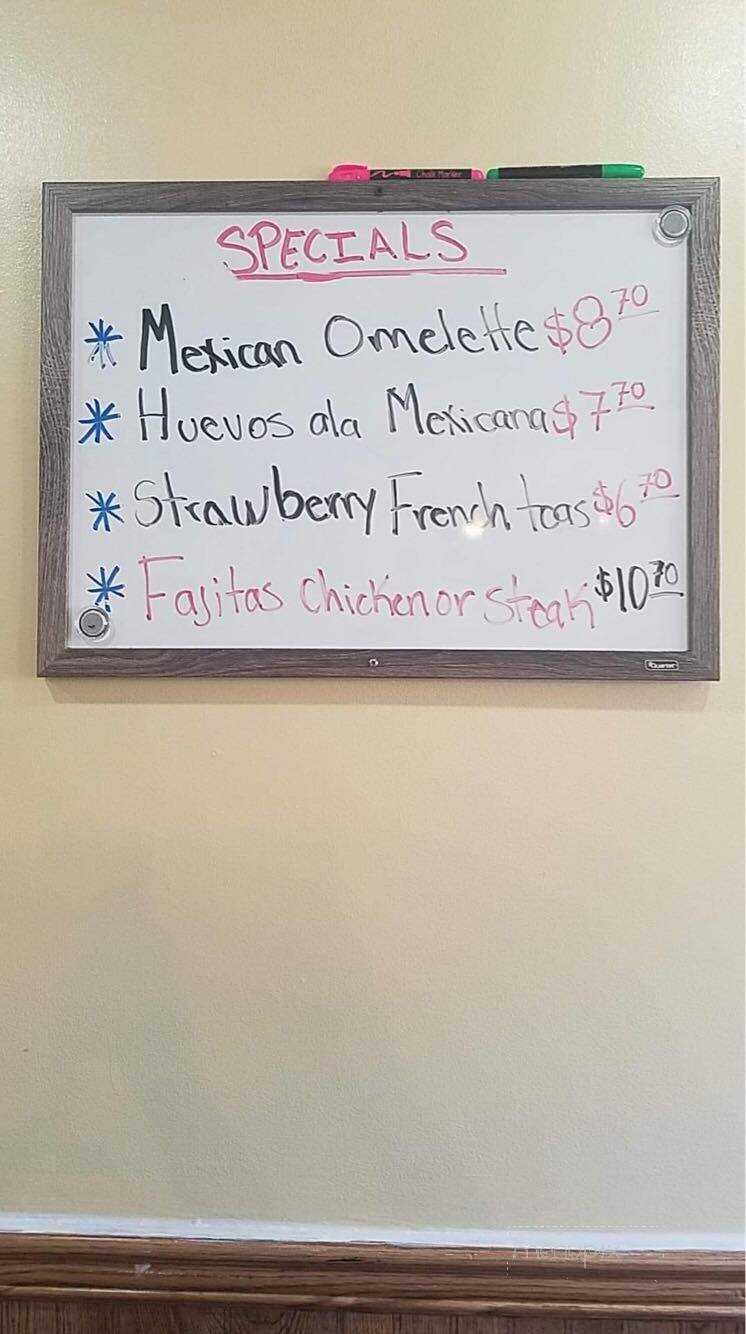 Chalk Marker
SPECIALS
* Mexican Omelette $8.70
* Huevos ala Mexicana $7.70
* Strawberry French toas $6.70
* Fajitas chicken or steak $10.70
Quartet